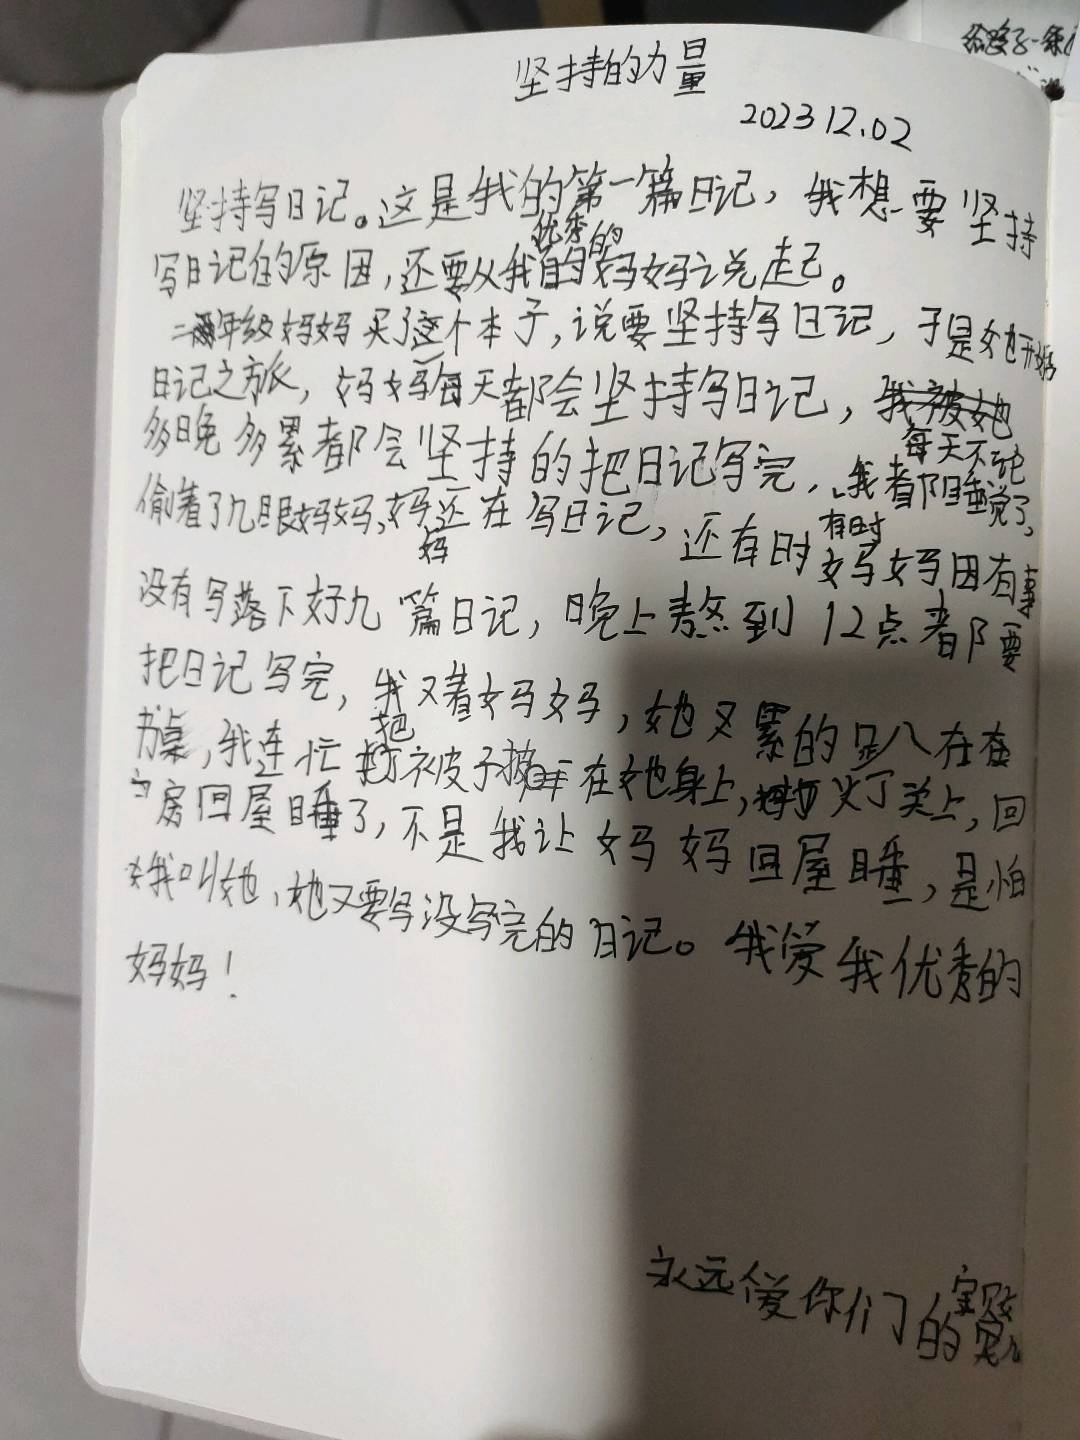 坚持的力量
2023 12.02
坚持写日记。这是我的第一篇日记，我想要坚持
优秀的
写日记的原因，还要从我的妈妈说起。
二年级妈妈买了这个本子，说要坚持写日记，于是她开始
日记之旅，妈妈每天都会坚持写日记，我被她
多晚多累都会坚持的把日记写完，
每天不论
我都睡觉了，
偷着了几眼妈妈，妈还在写日记，还有时
妈
有时
妈妈因有事
没有写落下好几篇日记，晚上熬到12点都要
把日记写完，我又着妈妈，她又累的趴在在
书桌，我连忙把被子披在她身上，把灯关上，回
房回屋睡了，不是我让妈妈回屋睡，是怕
我叫她，她又要写没写完的日记。我爱我优秀的
妈妈！
永远爱你们的
给孩子一条